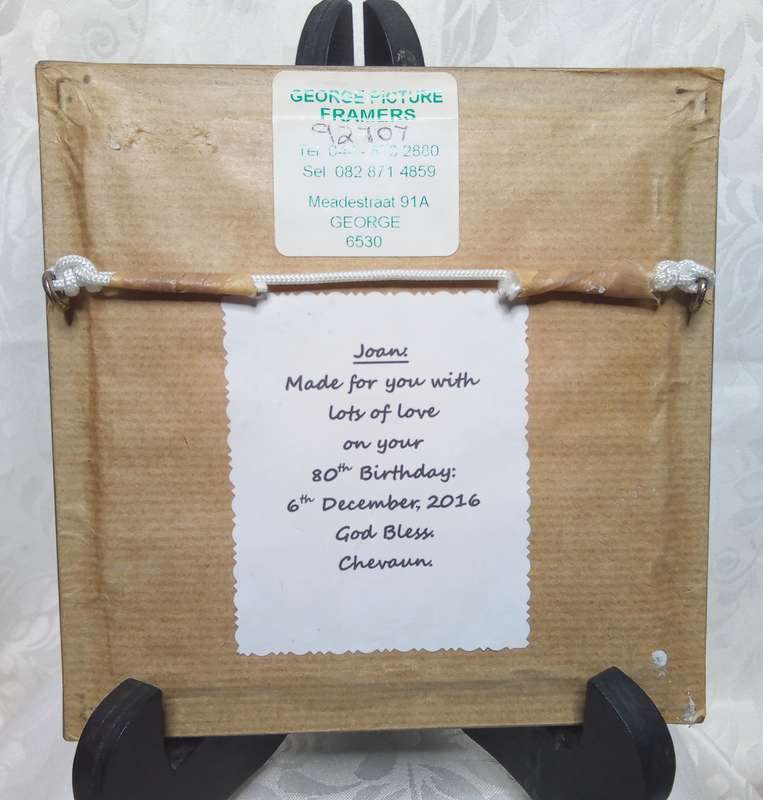 GEORGE PICTURE
FRAMERS
92707
Tel 2880
Sel 082 871 4859
Meadestraat 91A
GEORGE
6530
Joan:
Made for you with
lots of love
on your
80th Birthday:
6th December, 2016
God Bless.
Chevaun.